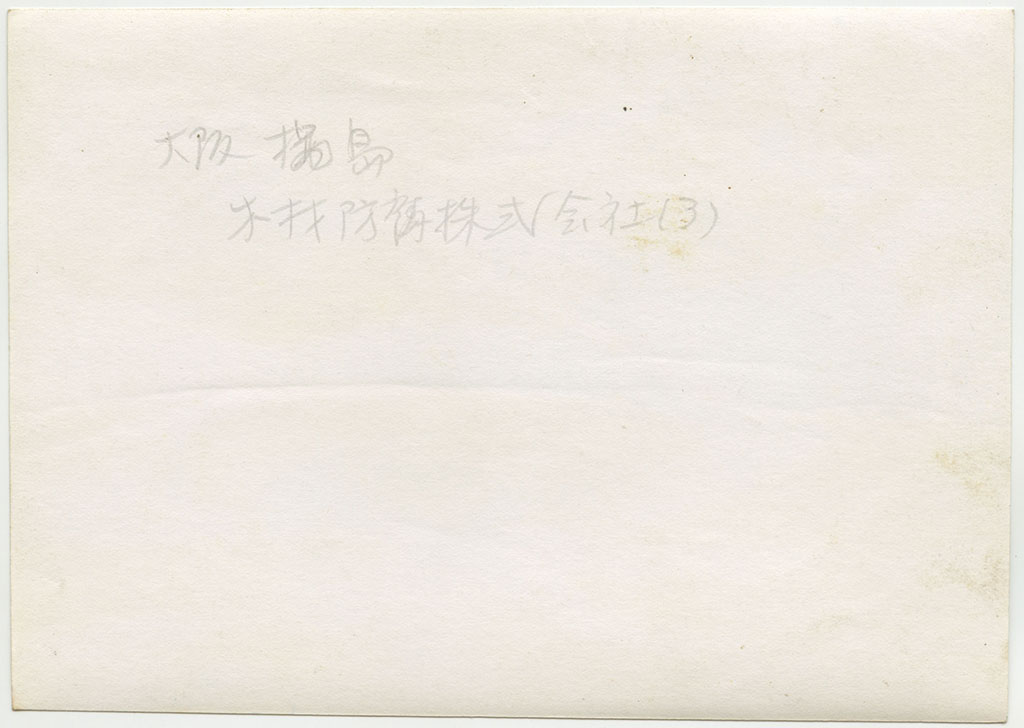 大阪
木材防腐株式会社(3)